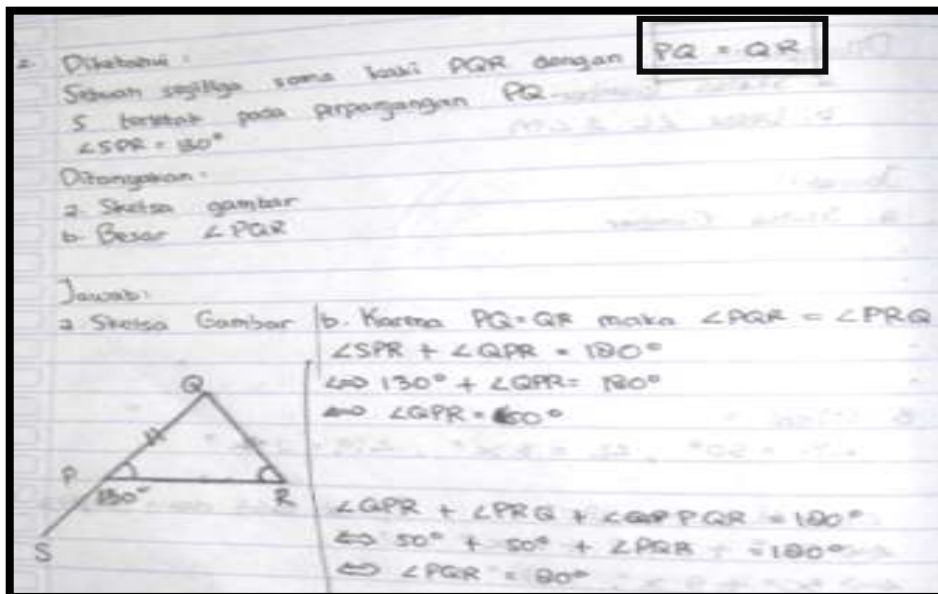 2. Diketahui :
Sebuah segitiga sama kaki PQR dengan PQ = QR
S terletak pada perpanjangan PQ
∠SPR = 130°
Ditanyakan :
a. Sketsa gambar
b. Besar ∠PQR
Jawab :
a. Sketsa Gambar
Q
P
130°
R
S
b. Karena PQ = QR maka ∠PQR = ∠PRQ
∠SPR + ∠QPR = 180°
⇔ 130° + ∠QPR = 180°
⇔ ∠QPR = 50°
∠QPR + ∠PRQ + PQR = 180°
⇔ 50° + 50° + ∠PQR = 180°
⇔ ∠PQR = 80°